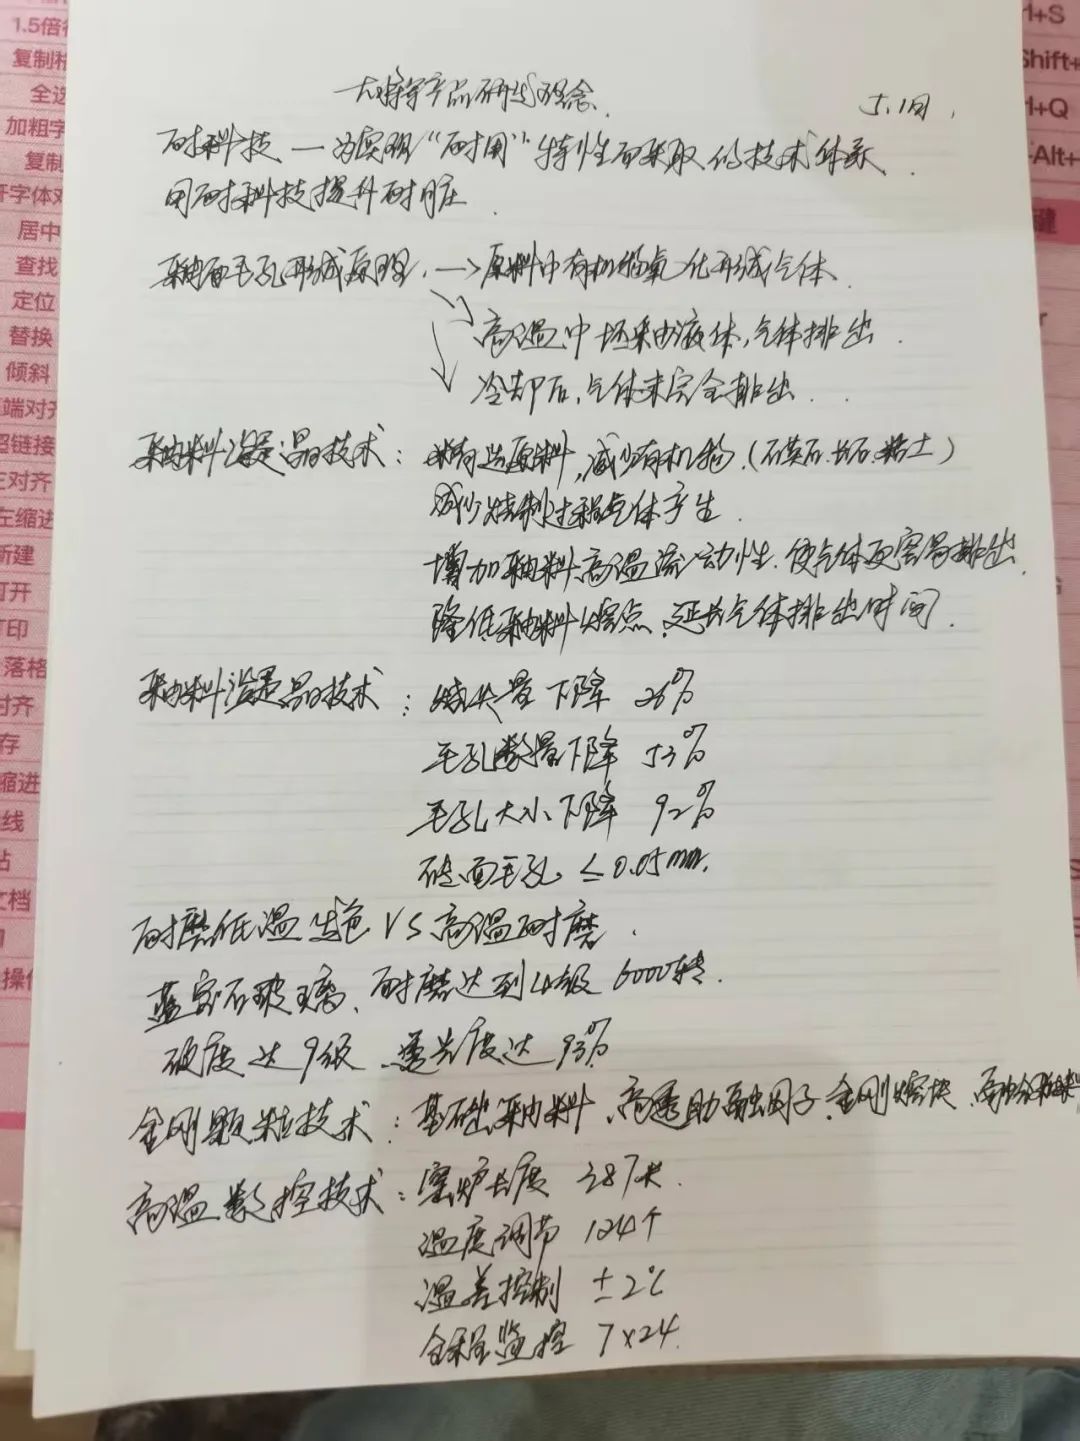 大将军产品研发理念
5.1日
耐科技 — 为实现“耐用”特性而采取的技术体系.
用耐科技提升耐脏.
釉面毛孔形成原理. → 原料中有机物氧化形成气体.
高温中坯釉液体,气体排出.
冷却后,气体未完全排出..
釉料 晶技术: 精选原料,减少有机物.(石英石.长石.粘土)
减少烧制过程气体产生.
增加釉料高温流动性.使气体更容易排出.
降低釉料熔点.延长气体排出时间.
釉料 晶技术: 烧失量下降 26%
毛孔数量下降 53%
毛孔大小下降 92%
砖面毛孔 ≤0.05mm.
耐磨低温生色 VS 高温耐磨.
蓝宝石玻璃.耐磨达到4级 6000转.
硬度达9级.透光度达93%
金刚颗粒技术: 基础釉料.高透助融因子.金刚熔块.
高温数控技术: 窑炉长度 387米.
温度调节 124个
温差控制 ±2℃
全程监控 7×24.
1.5倍
复制格
全选
加粗字
复制
字体对
居中
查找
定位
替换
倾斜
端对齐
超链接
对齐
左缩进
新建
打开
打印
落格
对齐
存
缩进
线
站
文档
操作
+S
Shift+
+Q
Alt+
键